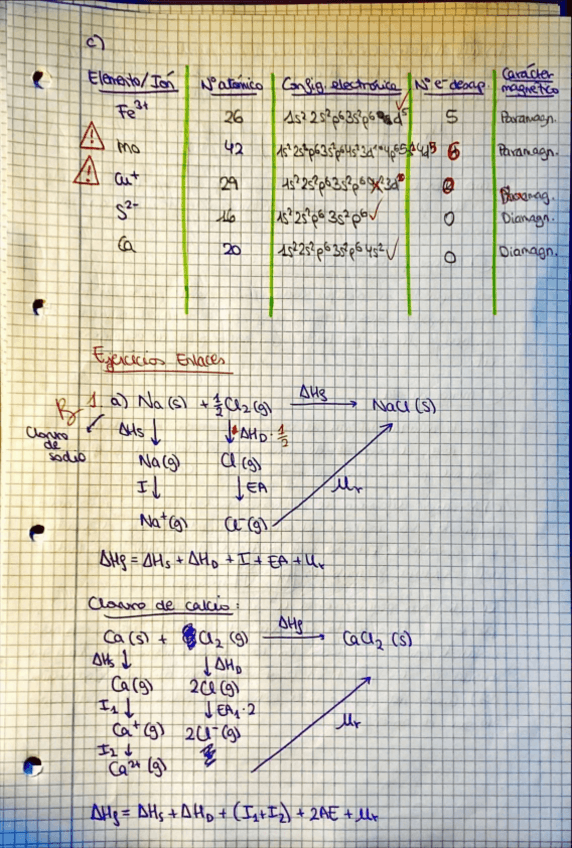 c)
Elemento/Ión Nº atómico Config. electrónica Nº e⁻ desap. Carácter magnético
Fe³⁺ 26 1s² 2s² p⁶ 3s² p⁶ d⁵ 5 Paramagn.
Mo 42 1s² 2s² p⁶ 3s² p⁶ 4s² 3d¹⁰ 4p⁶ 5s¹ 4d⁵ 6 Paramagn.
Cu⁺ 29 1s² 2s² p⁶ 3s² p⁶ 3d¹⁰ 0
S²⁻ 16 1s² 2s² p⁶ 3s² p⁶ 0 Diamagn.
Ca 20 1s² 2s² p⁶ 3s² p⁶ 4s² 0 Diamagn.
Ejercicios Enlaces
1 a) Na (s) + ½ Cl₂ (g) ΔHf NaCl (s)
Cloruro de sodio
ΔHs ΔHD · ½
Na (g) Cl (g)
I EA
Na⁺ (g) Cl⁻ (g) Ur
ΔHf = ΔHs + ΔHD + I + EA + Ur
Cloruro de calcio:
Ca (s) + Cl₂ (g) ΔHf CaCl₂ (s)
ΔHs ΔHD
Ca (g) 2Cl (g)
I₁ EA₁ · 2
Ca⁺ (g) 2Cl⁻ (g) Ur
I₂
Ca²⁺ (g)
ΔHf = ΔHs + ΔHD + (I₁ + I₂) + 2AE + Ur